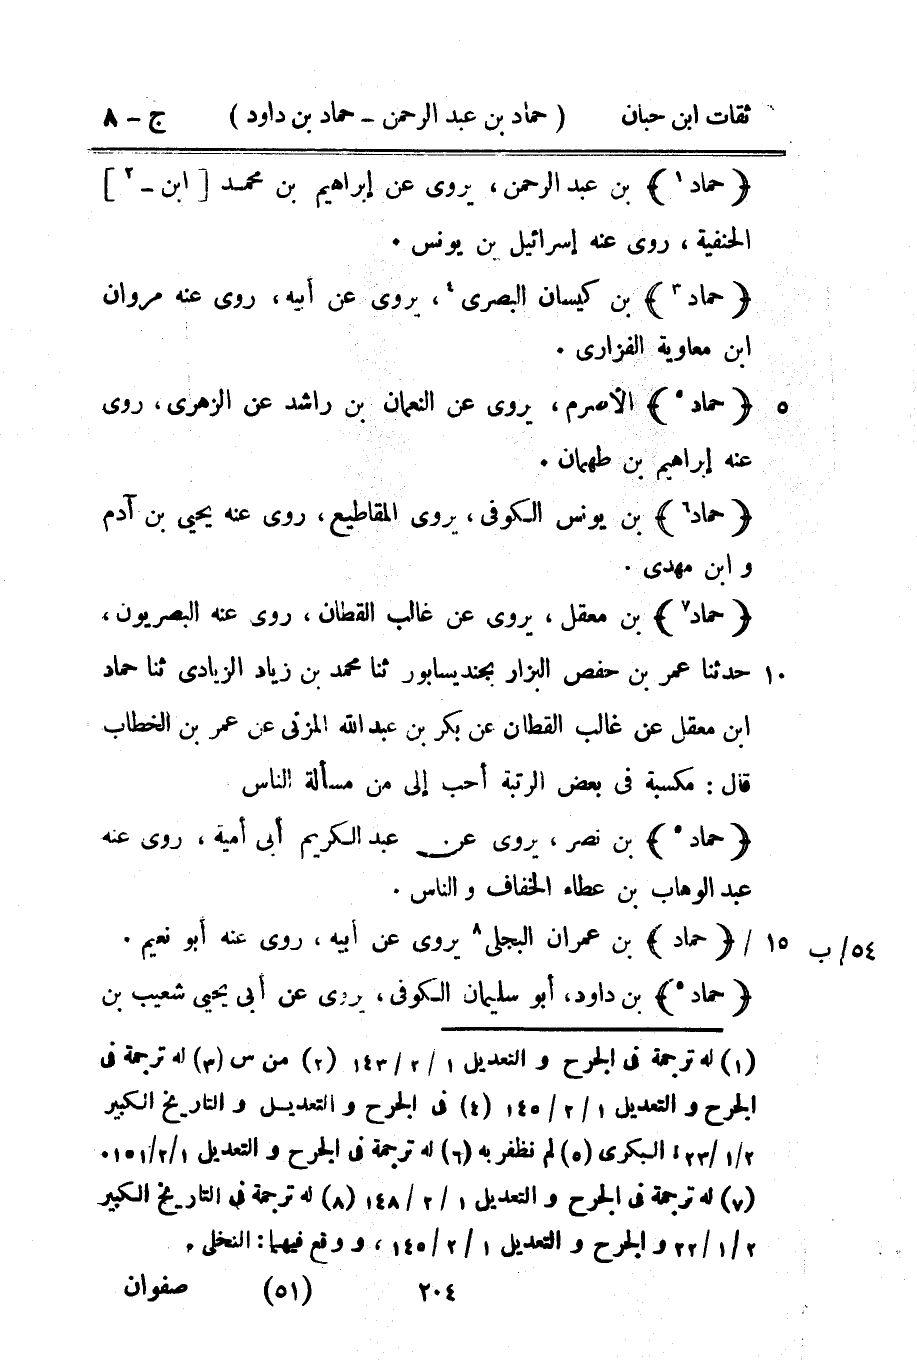 ثقات ابن حبان ( حماد بن عبد الرحمن - حماد بن داود ) ج - ٨
﴿ حماد ١ ﴾ بن عبد الرحمن ، يروى عن إبراهيم بن محمد [ ابن - ٢ ]
الحنفية ، روى عنه إسرائيل بن يونس .
﴿ حماد ٣ ﴾ بن كيسان البصرى ٤ ، يروى عن أبيه ، روى عنه مروان
ابن معاوية الفزارى .
٥ ﴿ حماد ٥ ﴾ الأصرم ، يروى عن النعمان بن راشد عن الزهرى ، روى
عنه إبراهيم بن طهمان .
﴿ حماد ٦ ﴾ بن يونس الكوفى ، يروى المقاطيع ، روى عنه يحيى بن آدم
و ابن مهدى .
﴿ حماد ٧ ﴾ بن معقل ، يروى عن غالب القطان ، روى عنه البصريون ،
١٠ حدثنا عمر بن حفص البزار بجنديسابور ثنا محمد بن زياد الزيادى ثنا حماد
ابن معقل عن غالب القطان عن بكر بن عبد الله المزنى عن عمر بن الخطاب
قال : مكسبة فى بعض الرتبة أحب إلى من مسألة الناس
﴿ حماد ٥ ﴾ بن نصر ، يروى عن عبد الكريم أبى أمية ، روى عنه
عبد الوهاب بن عطاء الخفاف و الناس .
٥٤/ ب ١٥ / ﴿ حماد ﴾ بن عمران البجلى ٨ يروى عن أبيه ، روى عنه أبو نعيم .
﴿ حماد ٥ ﴾ بن داود، أبو سليمان الكوفى ، يروى عن أبى يحيى شعيب بن
(١) له ترجمة فى الجرح و التعديل ١ / ٢ / ١٤٣ (٢) من س (٣) له ترجمة فى
الجرح و التعديل ١ / ٢ / ١٤٥ (٤) فى الجرح و التعديل و التاريخ الكبير
٢/ ١/ ٢٣ : البكرى (٥) لم نظفر به (٦) له ترجمة فى الجرح و التعديل ١/ ٢/ ١٥١.
(٧) له ترجمة فى الجرح و التعديل ١ / ٢ / ١٤٨ (٨) له ترجمة فى التاريخ الكبير
٢ / ١ / ٢٢ و الجرح و التعديل ١ / ٢ / ١٤٥ ، و وقع فيهما : النخلى .
٢٠٤ (٥١) صفوان